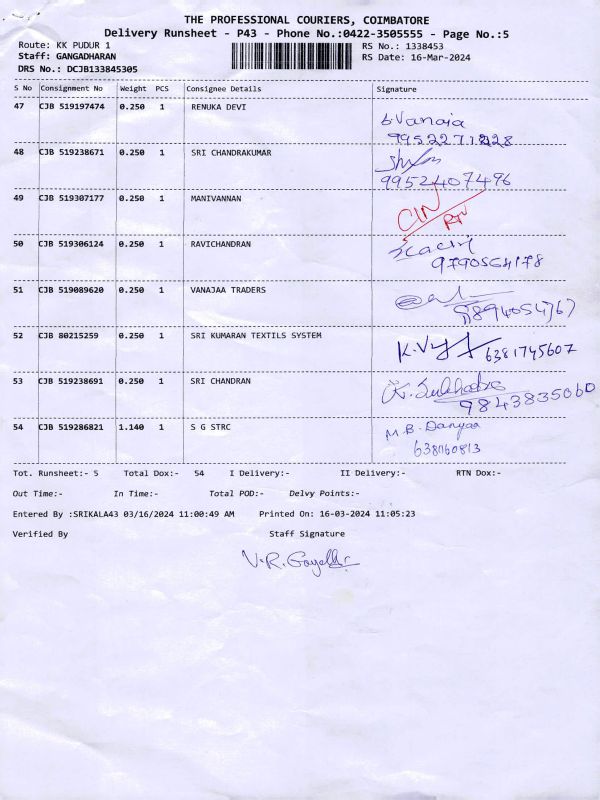 THE PROFESSIONAL COURIERS, COIMBATORE
Delivery Runsheet - P43 - Phone No.:0422-3505555 - Page No.:5
Route: KK PUDUR 1 RS No.: 1338453
Staff: GANGADHARAN RS Date: 16-Mar-2024
DRS No.: DCJB133845305
S No Consignment No Weight PCS Consignee Details Signature
47 CJB 519197474 0.250 1 RENUKA DEVI
Vanaja
48 CJB 519238671 0.250 1 SRI CHANDRAKUMAR
9952407496
49 CJB 519307177 0.250 1 MANIVANNAN
CIN
50 CJB 519306124 0.250 1 RAVICHANDRAN
9790564178
51 CJB 519089620 0.250 1 VANAJAA TRADERS
52 CJB 80215259 0.250 1 SRI KUMARAN TEXTILS SYSTEM
6381745607
53 CJB 519238691 0.250 1 SRI CHANDRAN
9843835060
54 CJB 519286821 1.140 1 S G STRC
M.B.
Tot. Runsheet:- 5 Total Dox:- 54 I Delivery:- II Delivery:- RTN Dox:-
Out Time:- In Time:- Total POD:- Delvy Points:-
Entered By :SRIKALA43 03/16/2024 11:00:49 AM Printed On: 16-03-2024 11:05:23
Verified By Staff Signature
V.R.